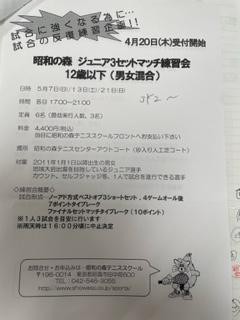 試合に強くなる為に…
試合の反復練習企画!!
4月20日(木)受付開始
昭和の森 ジュニア3セットマッチ練習会
12歳以下(男女混合)
日時 5月7日(日)/13日(土)/21日(日)
時間 各日 17:00~21:00
定員 6名(最低実行人数、3名)
料金 4,400円(税込)
当日に昭和の森テニススクールフロントへお支払い下さい
場所 昭和の森テニスセンターアウトコート(砂入り人工芝コート)
対象 2011年1月1日以降出生の男女
地域大会出場を目指しているジュニア選手
カウント、セルフジャッジ等、1人で試合を進行できる選手
◇練習会概要◇
試合形式…ノーアド方式ベストオブ3ショートセット、4ゲームオール後
7ポイントタイブレーク
ファイナルセットマッチタイブレーク(10ポイント)
※1人3試合を目安に行います
※雨天時は16:00分頃に中止決定
お問合せ・お申込みは…昭和の森テニススクール
〒196-0014 東京都昭島市田中町600
TEL:042-546-3055